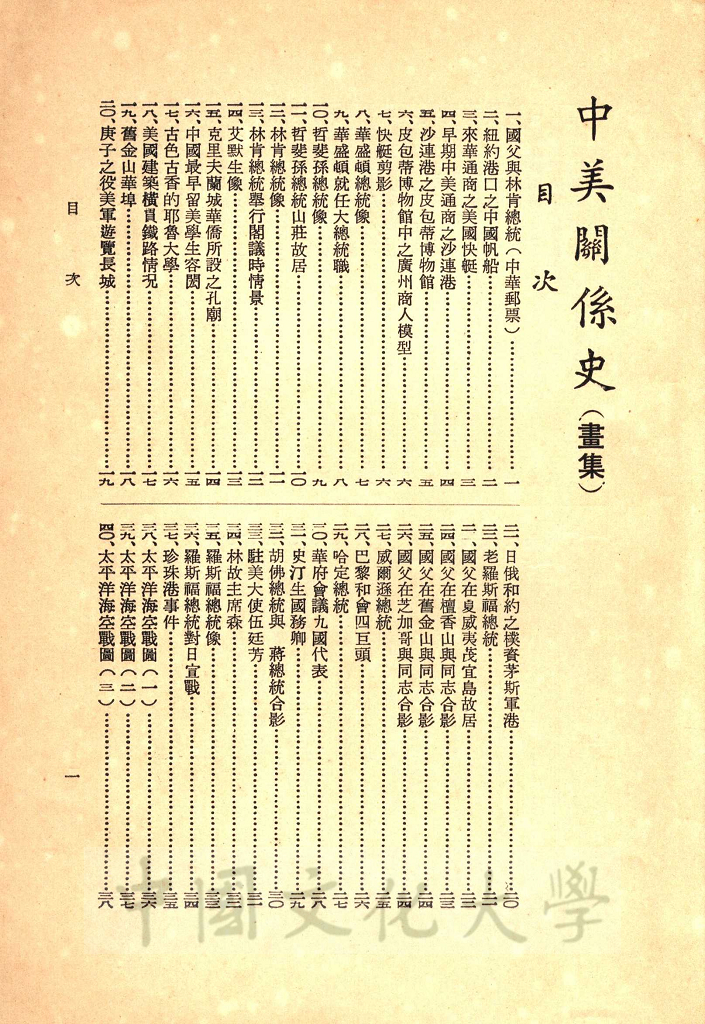 中美關係史(畫集)
目次
一、國父與林肯總統(中華郵票)……一
二、紐約港口之中國帆船……二
三、來華通商之美國快艇……三
四、早期中美通商之沙連港……四
五、沙連港之皮包蒂博物館……五
六、皮包蒂博物館中之廣州商人模型……六
七、快艇剪影……六
八、華盛頓總統像……七
九、華盛頓就任大總統職……八
一〇、哲斐孫總統像……九
一一、哲斐孫總統山莊故居……一〇
一二、林肯總統像……一一
一三、林肯總統舉行閣議時情景……一二
一四、艾默生像……一三
一五、克里夫蘭城華僑所設之孔廟……一四
一六、中國最早留美學生容閎……一五
一七、古色古香的耶魯大學……一六
一八、美國建築橫貫鐵路情況……一七
一九、舊金山華埠……一八
二〇、庚子之役美軍遊覽長城……一九
二一、日俄和約之樸資茅斯軍港……二〇
二二、老羅斯福總統……二一
二三、國父在夏威夷茂宜島故居……二二
二四、國父在檀香山與同志合影……二三
二五、國父在舊金山與同志合影……二四
二六、國父在芝加哥與同志合影……二四
二七、威爾遜總統……二五
二八、巴黎和會四巨頭……二六
二九、哈定總統……二七
三〇、華府會議九國代表……二八
三一、史汀生國務卿……二九
三二、胡佛總統與 蔣總統合影……三〇
三三、駐美大使伍廷芳……三一
三四、林故主席森……三二
三五、羅斯福總統像……三三
三六、羅斯福總統對日宣戰……三四
三七、珍珠港事件……三五
三八、太平洋海空戰圖(一)……三六
三九、太平洋海空戰圖(二)……三七
四〇、太平洋海空戰圖(三)……三八
目次
一
中國文化大學